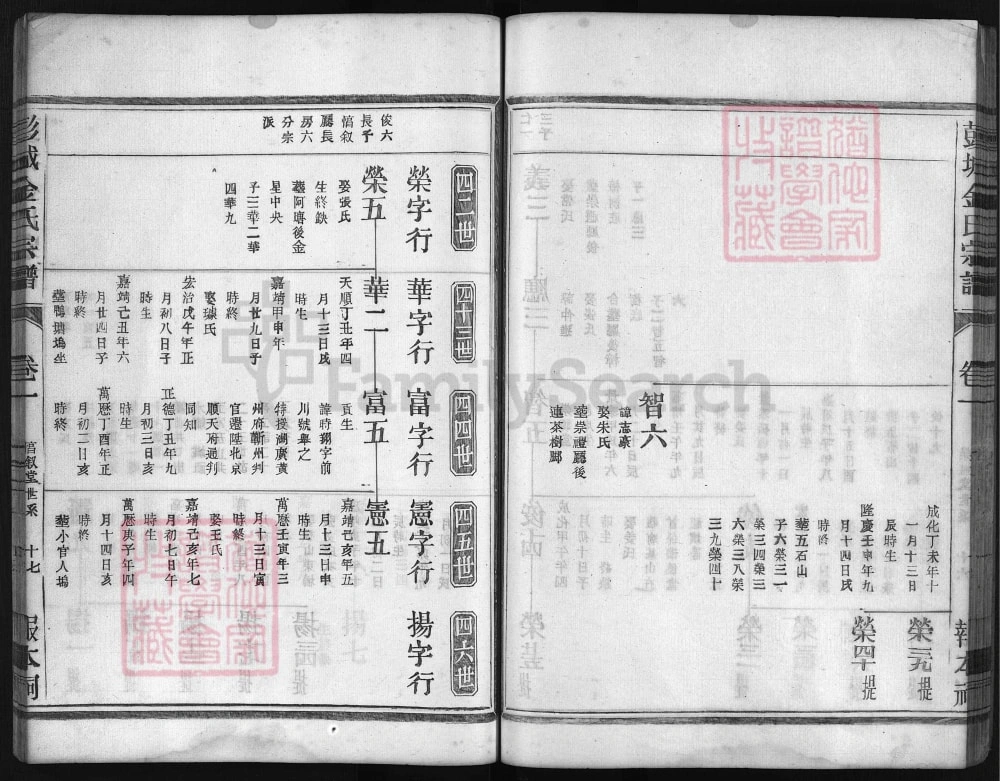 彭城金氏宗譜
卷一
報本祠
智六
諱志豪
娶朱氏
葬崇禮廳後
連茶樹腳
成化丁未年十
一月十三日
辰時生
隆慶壬申年九
月十四日戌
時終
葬五石山
子六榮三一
榮三四榮三
六榮三八榮
三九榮四十
榮三九提
榮四十提
俊六
長子
愃叙
廳長
房六
分宗
派
四二世
榮字行
榮五
娶張氏
生終缺
葬阿膺後金
星中央
子三華二華
四華九
四十三世
華字行
華二
天順丁丑年四
月十三日戌
時生
嘉靖甲申年
月廿九日子
時終
娶璩氏
宏治戊午年正
月初八日子
時生
嘉靖己丑年六
月廿四日子
時終
葬鴨塘塢坐
四四世
富字行
富五
貢生
諱時翱字前
川號與之
特授湖廣黃
州府蘄州判
官遷陞北京
順天府通判
同知
正德丁丑年九
月初三日亥
時生
萬曆丁酉年正
月初二日亥
時終
四五世
憲字行
憲五
嘉靖己亥年五
月十三日申
時生
萬曆壬寅年三
月十三日寅
時終
娶王氏
嘉靖己亥年七
月初七日午
時生
萬曆庚子年四
月十四日亥
時終
葬小官人塢
四六世
揚字行
彭城金氏宗譜
卷一
愃叙堂世系
十七
報本祠
FamilySearch